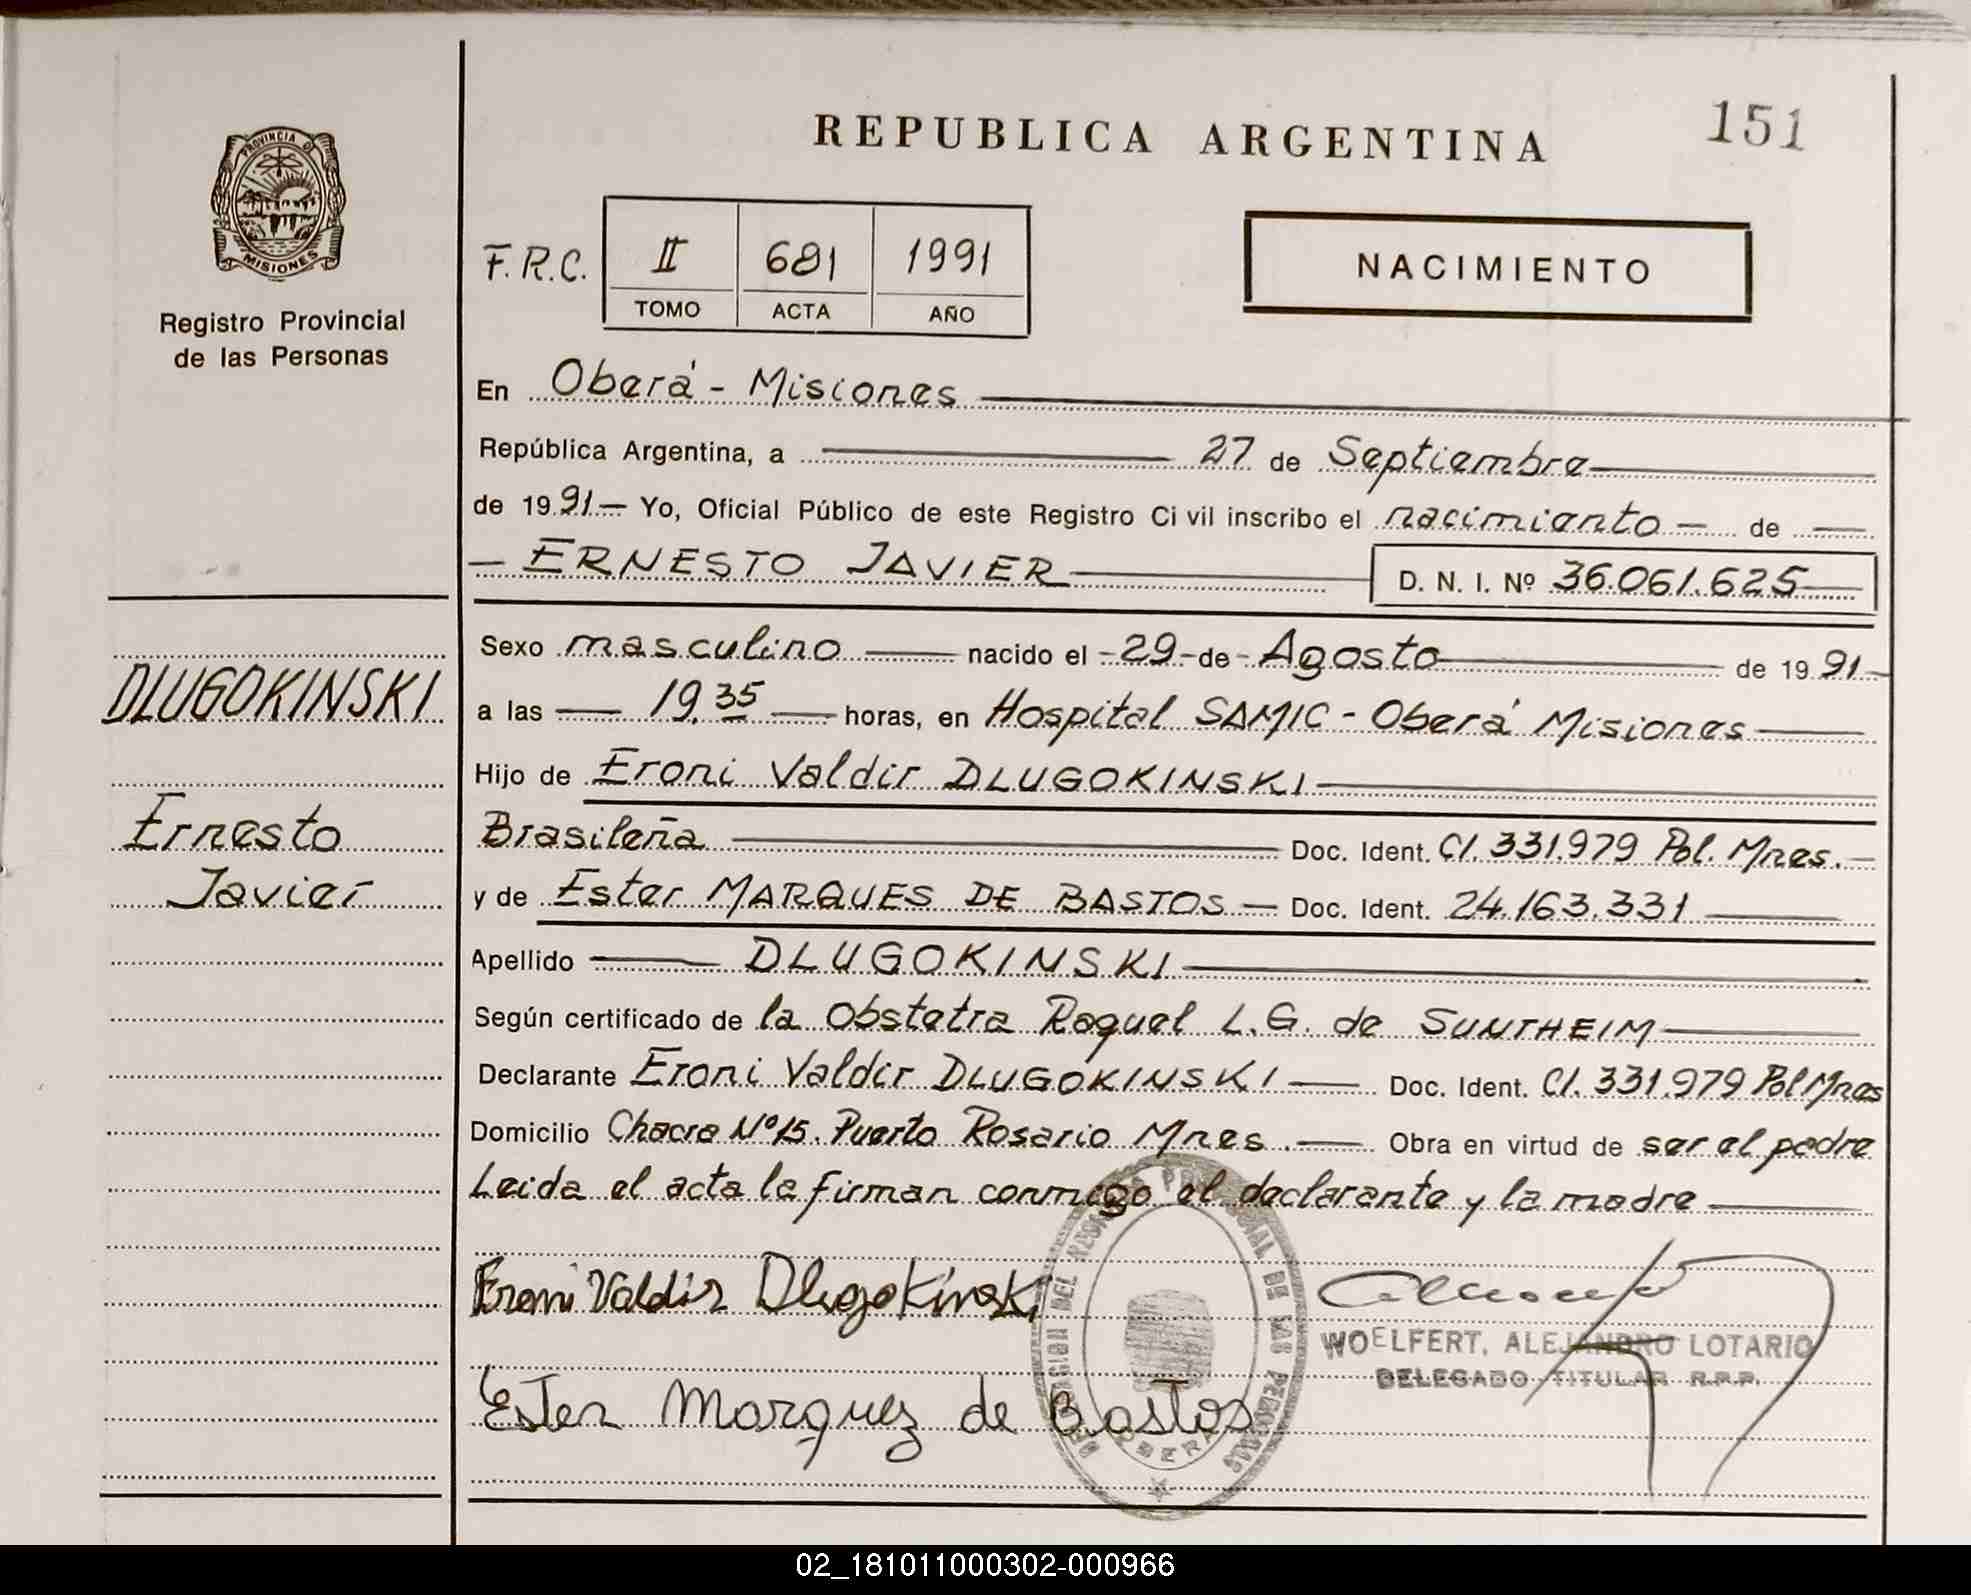 REPUBLICA ARGENTINA
151
PROVINCIA D
MISIONES
Registro Provincial
de las Personas
F.R.C.
II 681 1991
TOMO ACTA AÑO
NACIMIENTO
En Oberá - Misiones
República Argentina, a 27 de Septiembre
de 1991 - Yo, Oficial Público de este Registro Ci vil inscribo el nacimiento - de -
- ERNESTO JAVIER D. N. I. Nº 36.061.625
DLUGOKINSKI
Ernesto
Javier
Sexo masculino nacido el - 29 - de - Agosto de 1991 -
a las 19.35 horas, en Hospital SAMIC - Oberá Misiones
Hijo de Eroni Valdir DLUGOKINSKI
Brasileña Doc. Ident. CI. 331.979 Pol. Mnes.
y de Ester MARQUES DE BASTOS - Doc. Ident. 24.163.331
Apellido DLUGOKINSKI
Según certificado de la Obstetra Raquel L.G. de SUNTHEIM
Declarante Eroni Valdir DLUGOKINSKI Doc. Ident. CI. 331.979 Pol Mnes
Domicilio Chacra Nº 15. Puerto Rosario Mnes. Obra en virtud de ser el padre
Leida el acta la firman conmigo el declarante y la madre
Eroni Valdir DlugoKinsKi
WOELFERT, ALEJANDRO LOTARIO
DELEGADO TITULAR R.P.P.
Ester Marquez de Bastos
DELEGACION DEL REGISTRO PROVINCIAL DE LAS PERSONAS
OBERA
02_181011000302-000966